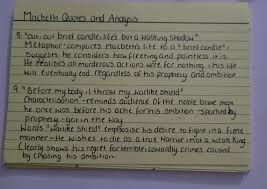 Macbeth Quotes and Analysis
8. "Out, out brief candle, life's but a walking shadow"
Metaphor - compares Macbeth's life to a "brief candle",
suggests he considers how fleeting and pointless it is.
He realises all murderous actions were for nothing. This life
will eventually end regardless of his prophecy and ambition.
9. "Before my body I throw my warlike shield"
Characterisation - reminds audience of the noble brave man
he once was before his ache for his ambition - started by
prophecy - got in the way.
Words "warlike shield" emphasise his desire to fight in a fierce
manner - He wishes to die as a true warrior, not a weak King.
Clearly shows his regret for former cowardly crimes caused
by chasing his ambition.